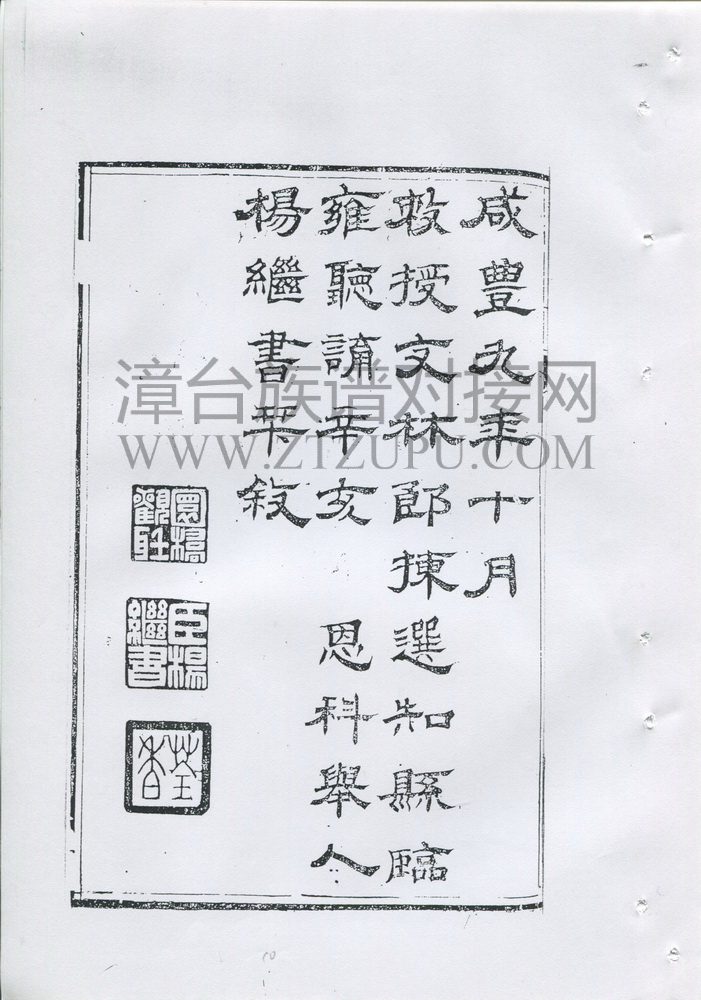 咸豐九年十月
敕授文林郎揀選知縣臨
雍聽誦辛亥 恩科舉人
楊繼書栞敘
圜橋觀聽
臣楊繼書
漳台族谱对接网
WWW.ZTZUPU.COM